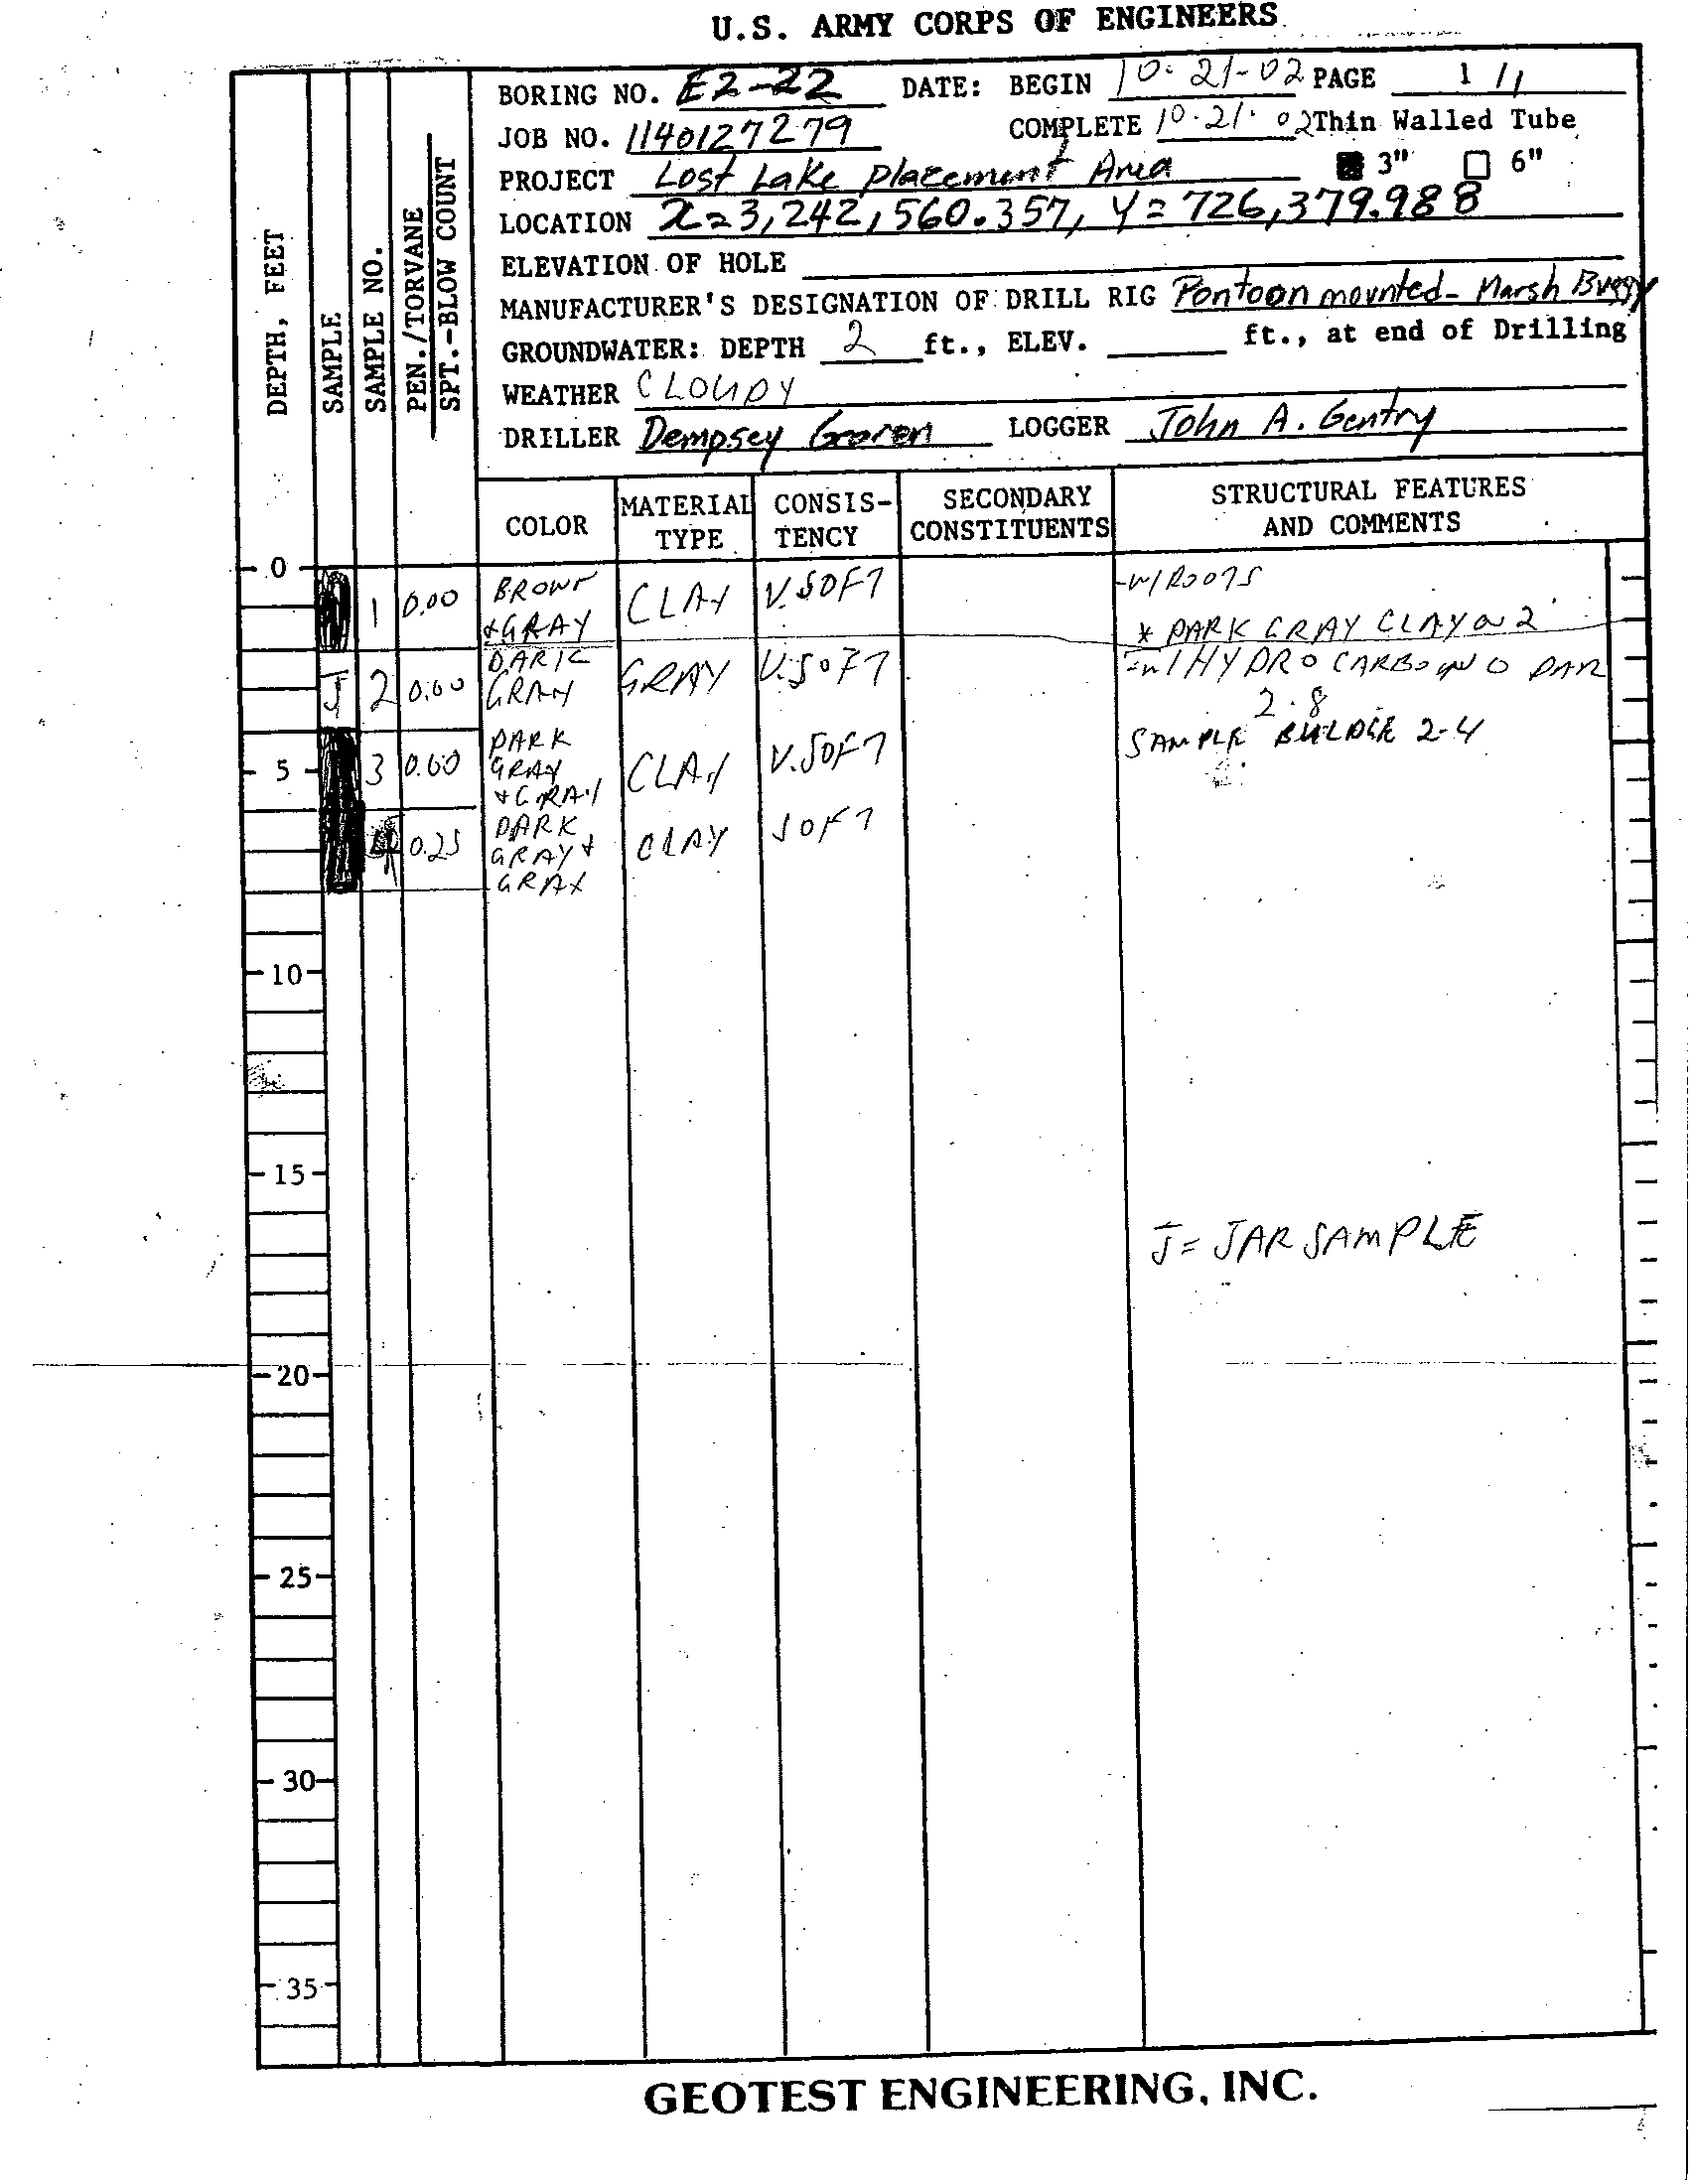 U.S. ARMY CORPS OF ENGINEERS
BORING NO. E2-22 DATE: BEGIN 10-21-02 PAGE 1 / 1
JOB NO. 1140127279 COMPLETE 10-21-02 Thin Walled Tube
PROJECT Lost Lake Placement Area 3" 6"
LOCATION X=3,242,560.357, Y=726,379.988
ELEVATION OF HOLE
MANUFACTURER'S DESIGNATION OF DRILL RIG Pontoon mounted-Marsh Buggy
GROUNDWATER: DEPTH 2 ft., ELEV. ft., at end of Drilling
WEATHER CLOUDY
DRILLER Dempsey LOGGER John A. Gentry
DEPTH, FEET
SAMPLE
SAMPLE NO.
PEN./TORVANE
SPT.-BLOW COUNT
COLOR MATERIAL TYPE CONSIS-TENCY SECONDARY CONSTITUENTS STRUCTURAL FEATURES AND COMMENTS
0
1 0.00 BROWN & GRAY CLAY V.SOFT -W/ROOTS
* DARK GRAY CLAY @ 2'
J 2 0.00 DARK GRAY GRAY V.SOFT -W/HYDROCARBON ODAR
2.8
SAMPLE BULDGE 2-4
5 3 0.00 DARK GRAY & GRAY CLAY V.SOFT
4 0.25 DARK GRAY & GRAY CLAY SOFT
10
15
J = JAR SAMPLE
20
25
30
35
GEOTEST ENGINEERING, INC.